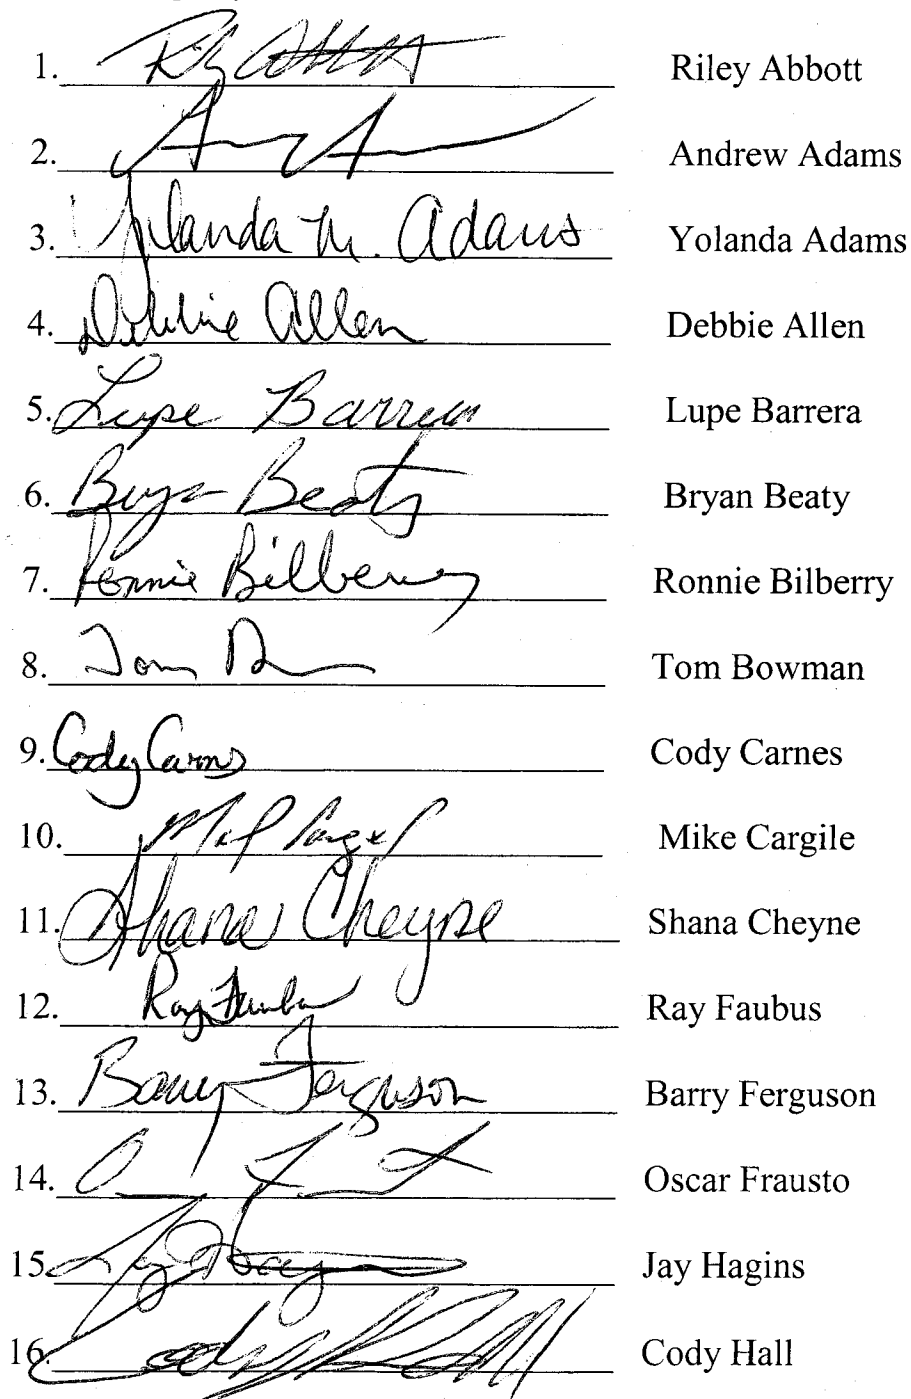 1. Riley Abbott
2. Andrew Adams
3. Yolanda M. Adams Yolanda Adams
4. Debbie Allen Debbie Allen
5. Lupe Barrera Lupe Barrera
6. Bryan Beaty Bryan Beaty
7. Ronnie Bilberry Ronnie Bilberry
8. Tom Tom Bowman
9. Cody Carnes Cody Carnes
10. Mike Cargile
11. Shana Cheyne Shana Cheyne
12. Ray Faubus Ray Faubus
13. Barry Ferguson Barry Ferguson
14. Oscar Frausto
15. Jay Hagins
16. Cody Hall Cody Hall